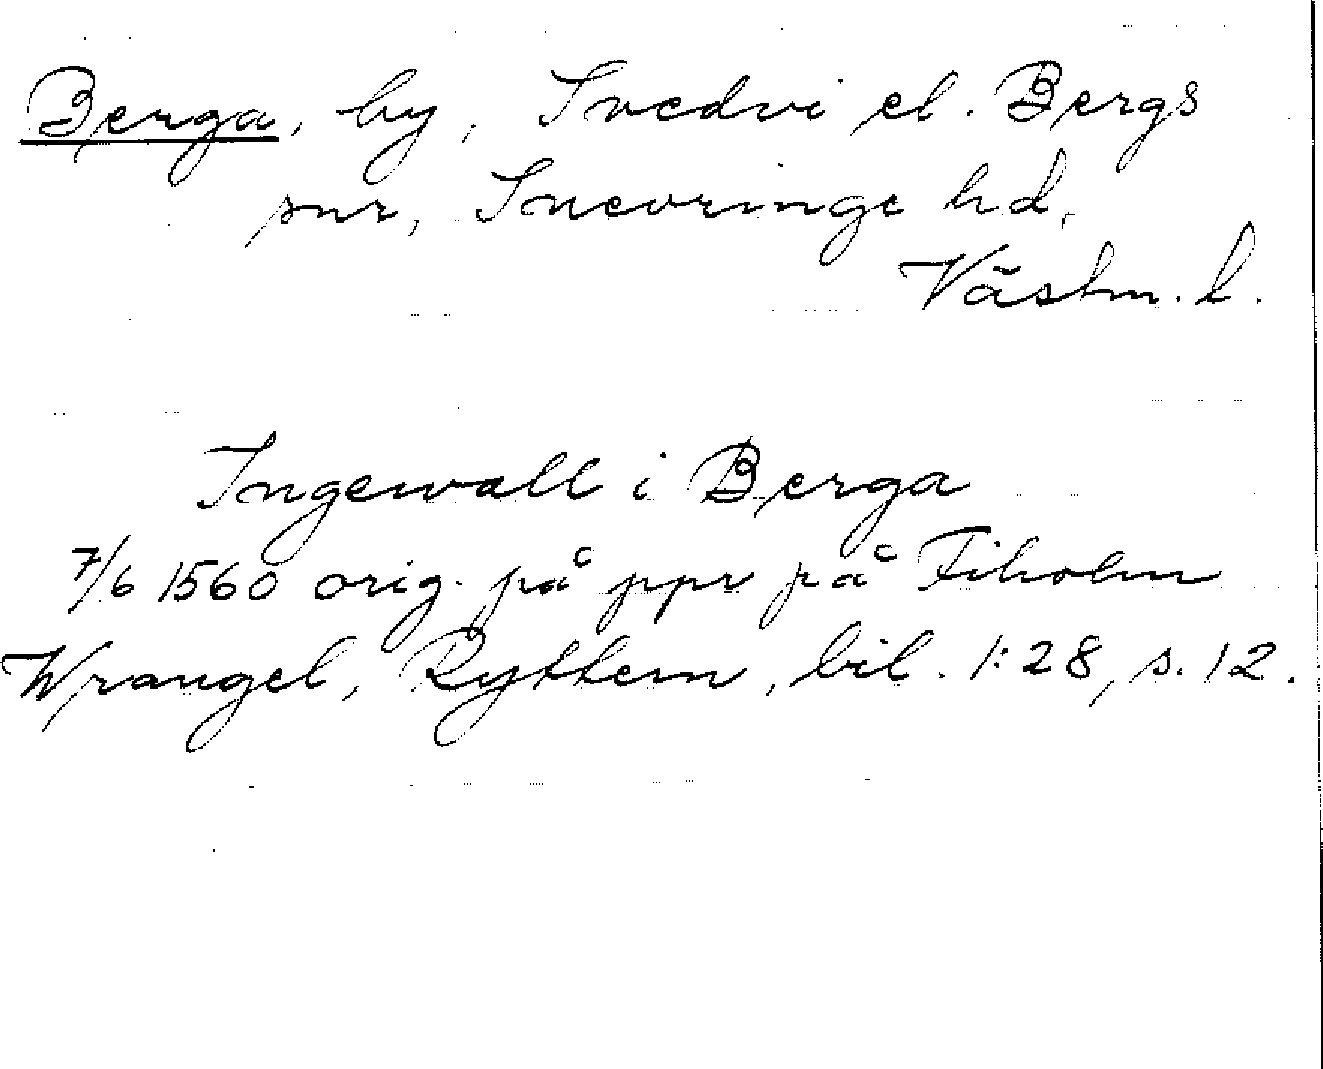 Berga, by, Svedvi el. Bergs
snr, Snevringe hd,
Västm. l.
Ingewall i Berga
7/6 1560 orig. på ppr på Fiholm
Wrangel, Ryttern, bil. 1:28, s. 12.